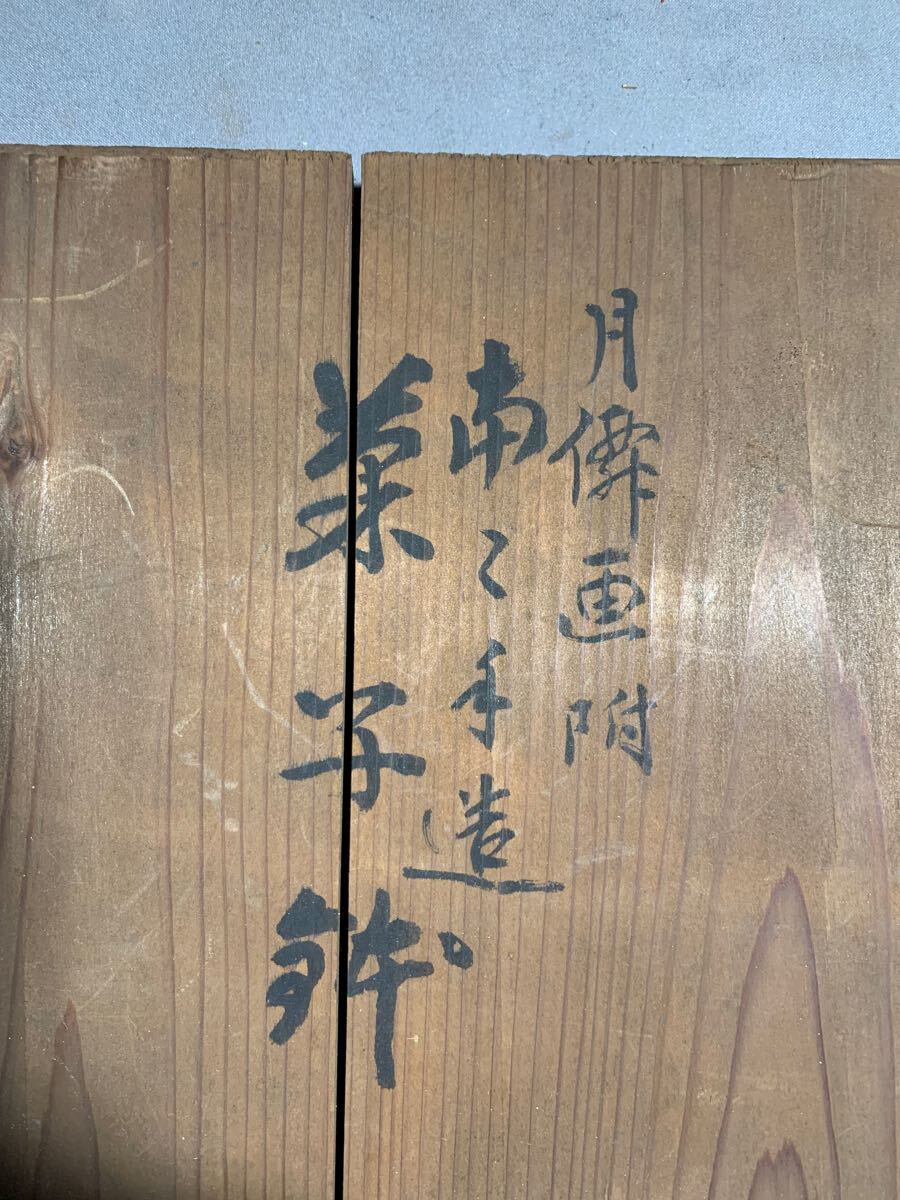 月僊画附
南〻手造
菓子鉢